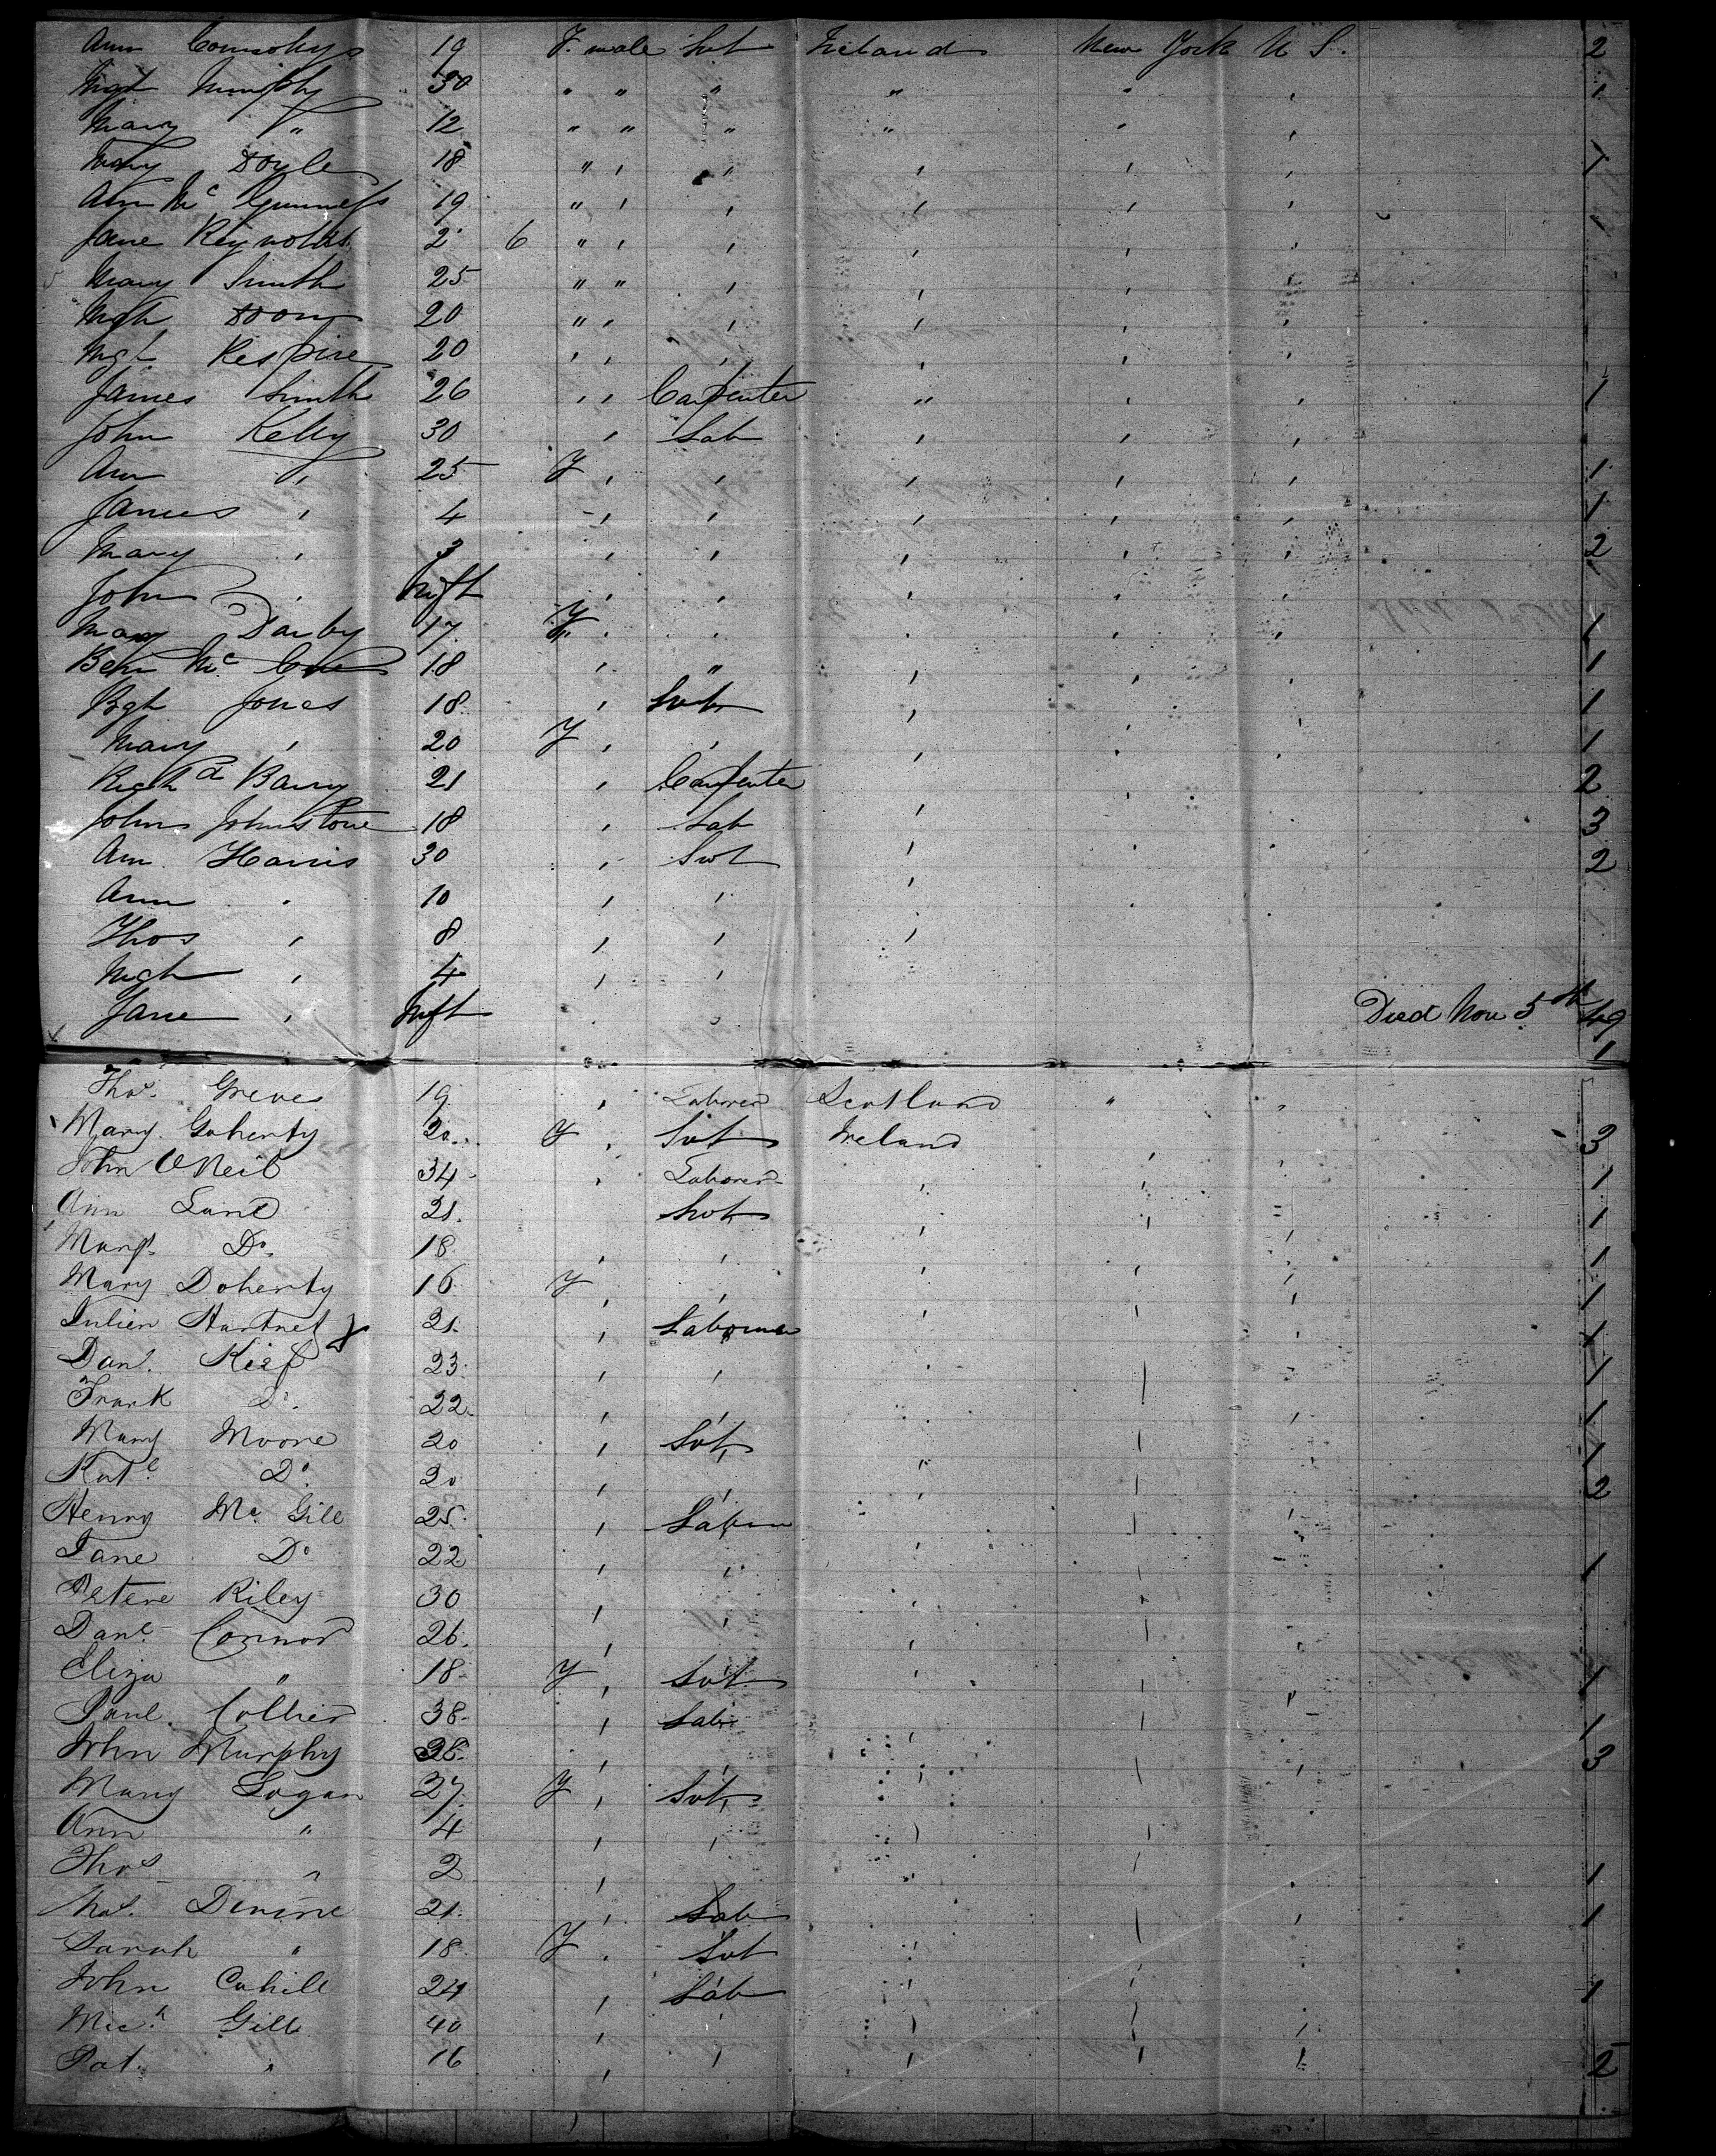 Ann 19 F. male Svt Ireland New York U S. 2
Mgt Murphy 30 " " " " " " 1
Mary " 12 " " " " " "
Mary Doyle 18 " " " " " " 1
Ann Mc Guinness 19 " " " " " "
Jane Reynolds 2 6 " " " " " " 1
Mary Smith 25 " " " " " "
Mgt 20 " " " " " "
Mgt 20 " " " " " "
James Smith 26 " " Carpenter " " " 1
John Kelly 30 " Lab " " "
Ann " 25 F " " " " " 1
James " 4 " " " " " 1
Mary " 3 " " " " " 2
John " Inft " " " " "
Mary Darby 17 F " " " " " 1
Mc 18 " " " " " 1
Bgt Jones 18 " Svt " " " 1
Mary " 20 F " " " " " 1
Richd Barry 21 " Carpenter 2
John Johnstone 18 " Lab " 3
Ann Harris 30 " Svt " 2
Ann " 10 " " "
Thos " 8 " " "
Mgt " 4 " "
Jane " Inft Died Nov 5th 49
1
Thos. Greves 19 " Laborer Scotland " "
Mary Goherty 20 F " Svt Ireland 3
John O Neil 34 " Laborer " " " 1
Ann Lane 21. Svt " " " 1
Margt. Do. 18 " " " " " 1
Mary Doherty 16 F " " " " " 1
Julien Hartnet 21. " Laborer " " " 1
Danl. Kief 23. " " " " 1
Frank Do. 22. " " " " 1
Mary Moore 20 " Svt " " 1
Kate Do 20 " " " " 2
Henry Mc. Gill 25. " Labor " " "
Jane Do 22 " " " " 1
Peter Riley 30 " " " "
Danl. Connor 26. " " " "
Eliza " 18. F " Svt " " 1
Collier 38. " Labr " " 1
John Murphy 28. " " " " " 3
Mary Logan 27. F " Svt " "
Ann " 4 " " " "
Thos " 2 " " 1
Devine 21. " Lab " " 1
Sarah " 18 F " Svt " "
John Cahill 24 " Lab " " 1
Mich. Gill 40 " " " " "
Pat. " 16 " " " " " 2